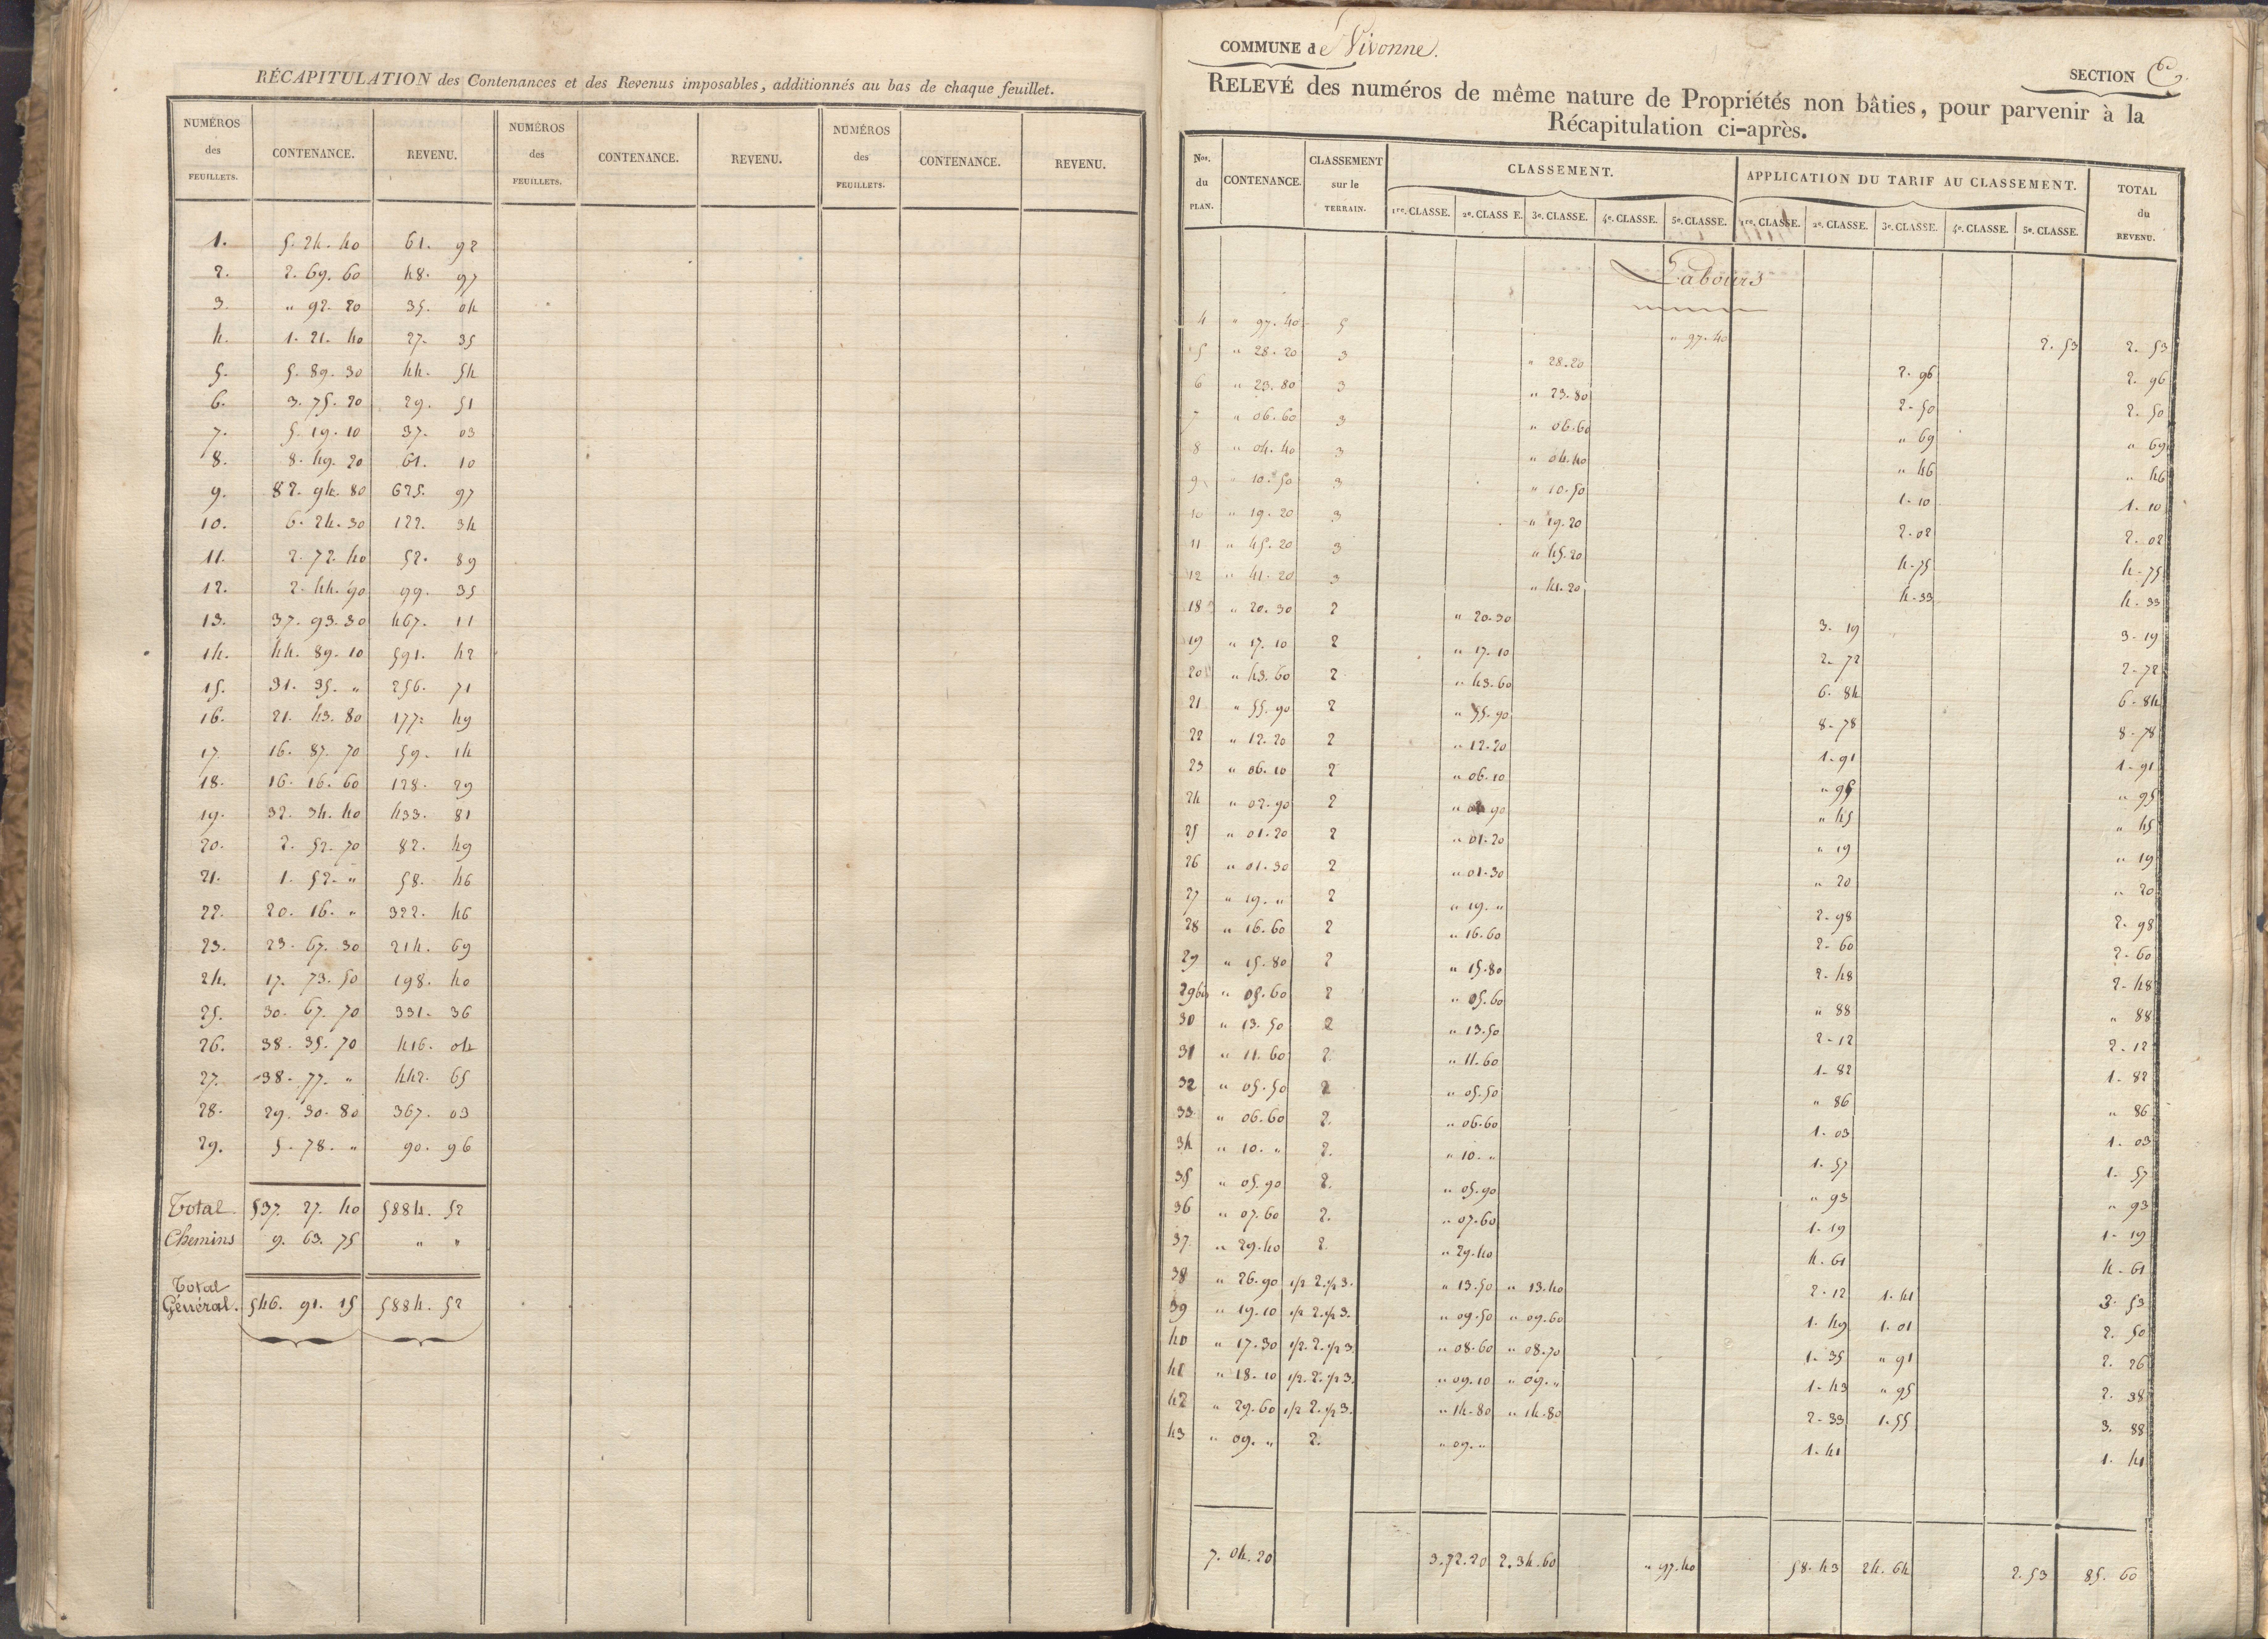 RÉCAPITULATION des Contenances et des Revenus imposables, additionnés au bas de chaque feuillet.
NUMÉROS des FEUILLETS. CONTENANCE. REVENU. NUMÉROS des FEUILLETS. CONTENANCE. REVENU. NUMÉROS des FEUILLETS. CONTENANCE. REVENU.
1. 5. 24. 40 61. 92
2. 2. 69. 60 48. 97
3. " 92. 20 35. 04
4. 1. 21. 40 27. 35
5. 5. 89. 30 44. 54
6. 3. 75. 20 29. 51
7. 5. 19. 10 37. 03
8. 8. 49. 20 61. 10
9. 82. 94. 80 625. 97
10. 6. 24. 30 122. 34
11. 2. 72. 40 52. 89
12. 2. 44. 90 99. 35
13. 37. 93. 30 467. 11
14. 44. 89. 10 591. 42
15. 31. 35. " 256. 71
16. 21. 43. 80 177. 49
17. 16. 87. 70 59. 14
18. 16. 16. 60 128. 29
19. 32. 34. 40 433. 81
20. 2. 52. 70 82. 49
21. 1. 52. " 58. 46
22. 20. 16. " 322. 46
23. 23. 67. 30 214. 69
24. 17. 73. 50 198. 40
25. 30. 67. 70 331. 36
26. 38. 35. 70 416. 04
27. 38. 77. " 442. 65
28. 29. 30. 80 367. 03
29. 5. 78. " 90. 96
Total 537. 27. 40 5884. 52
Chemins 9. 63. 75 " "
Total
Général. 546. 91. 15 5884. 52
COMMUNE de Vivonne.
SECTION
RELEVÉ des numéros de même nature de Propriétés non bâties, pour parvenir à la
Récapitulation ci-après.
Nos. du PLAN. CONTENANCE. CLASSEMENT sur le TERRAIN. CLASSEMENT. APPLICATION DU TARIF AU CLASSEMENT. TOTAL du REVENU.
1re. CLASSE. 2e. CLASSE. 3e. CLASSE. 4e. CLASSE. 5e. CLASSE. 1re. CLASSE. 2e. CLASSE. 3e. CLASSE. 4e. CLASSE. 5e. CLASSE.
Labours
4 " 97. 40 5 " 97. 40 2. 53 2. 53
5 " 28. 20 3 " 28. 20 2. 96 2. 96
6 " 23. 80 3 " 23. 80 2. 50 2. 50
7 " 06. 60 3 " 06. 60 " 69 " 69
8 " 04. 40 3 " 04. 40 " 46 " 46
9 " 10. 50 3 " 10. 50 1. 10 1. 10
10 " 19. 20 3 " 19. 20 2. 02 2. 02
11 " 45. 20 3 " 45. 20 4. 75 4. 75
12 " 41. 20 3 " 41. 20 4. 33 4. 33
18 " 20. 30 2 " 20. 30 3. 19 3. 19
19 " 17. 10 2 " 17. 10 2. 72 2. 72
20 " 43. 60 2 " 43. 60 6. 84 6. 84
21 " 55. 90 2 " 55. 90 8. 78 8. 78
22 " 12. 20 2 " 12. 20 1. 91 1. 91
23 " 06. 10 2 " 06. 10 " 95 " 95
24 " 02. 90 2 " 02 90 " 45 " 45
25 " 01. 20 2 " 01. 20 " 19 " 19
26 " 01. 30 2 " 01. 30 " 20 " 20
27 " 19. " 2 " 19. " 2. 98 2. 98
28 " 16. 60 2 " 16. 60 2. 60 2. 60
29 " 15. 80 2 " 15. 80 2. 48 2. 48
29bis " 05. 60 2 " 05. 60 " 88 " 88
30 " 13. 50 2 " 13. 50 2. 12 2. 12
31 " 11. 60 2. " 11. 60 1. 82 1. 82
32 " 05. 50 2 " 05. 50 " 86 " 86
33 " 06. 60 2. " 06. 60 1. 03 1. 03
34 " 10. " 2. " 10. " 1. 57 1. 57
35 " 05. 90 2. " 05. 90 " 93 " 93
36 " 07. 60 2. " 07. 60 1. 19 1. 19
37 " 29. 40 2. " 29. 40 4. 61 4. 61
38 " 26. 90 1/2 2. 1/2 3. " 13. 50 " 13. 40 2. 12 1. 41 3. 53
39 " 19. 10 1/2 2. 1/2 3. " 09. 50 " 09. 60 1. 49 1. 01 2. 50
40 " 17. 30 1/2. 2. 1/2 3. " 08. 60 " 08. 70 1. 35 " 91 2. 26
41 " 18. 10 1/2. 2. 1/2 3. " 09. 10 " 09. " 1. 43 " 95 2. 38
42 " 29. 60 1/2 2. 1/2 3. " 14. 80 " 14. 80 2. 33 1. 55 3. 88
43 " 09. " 2. " 09. " 1. 41 1. 41
7. 04. 20 3. 72. 20 2. 34. 60 " 97. 40 58. 43 24. 64 2. 53 85. 60